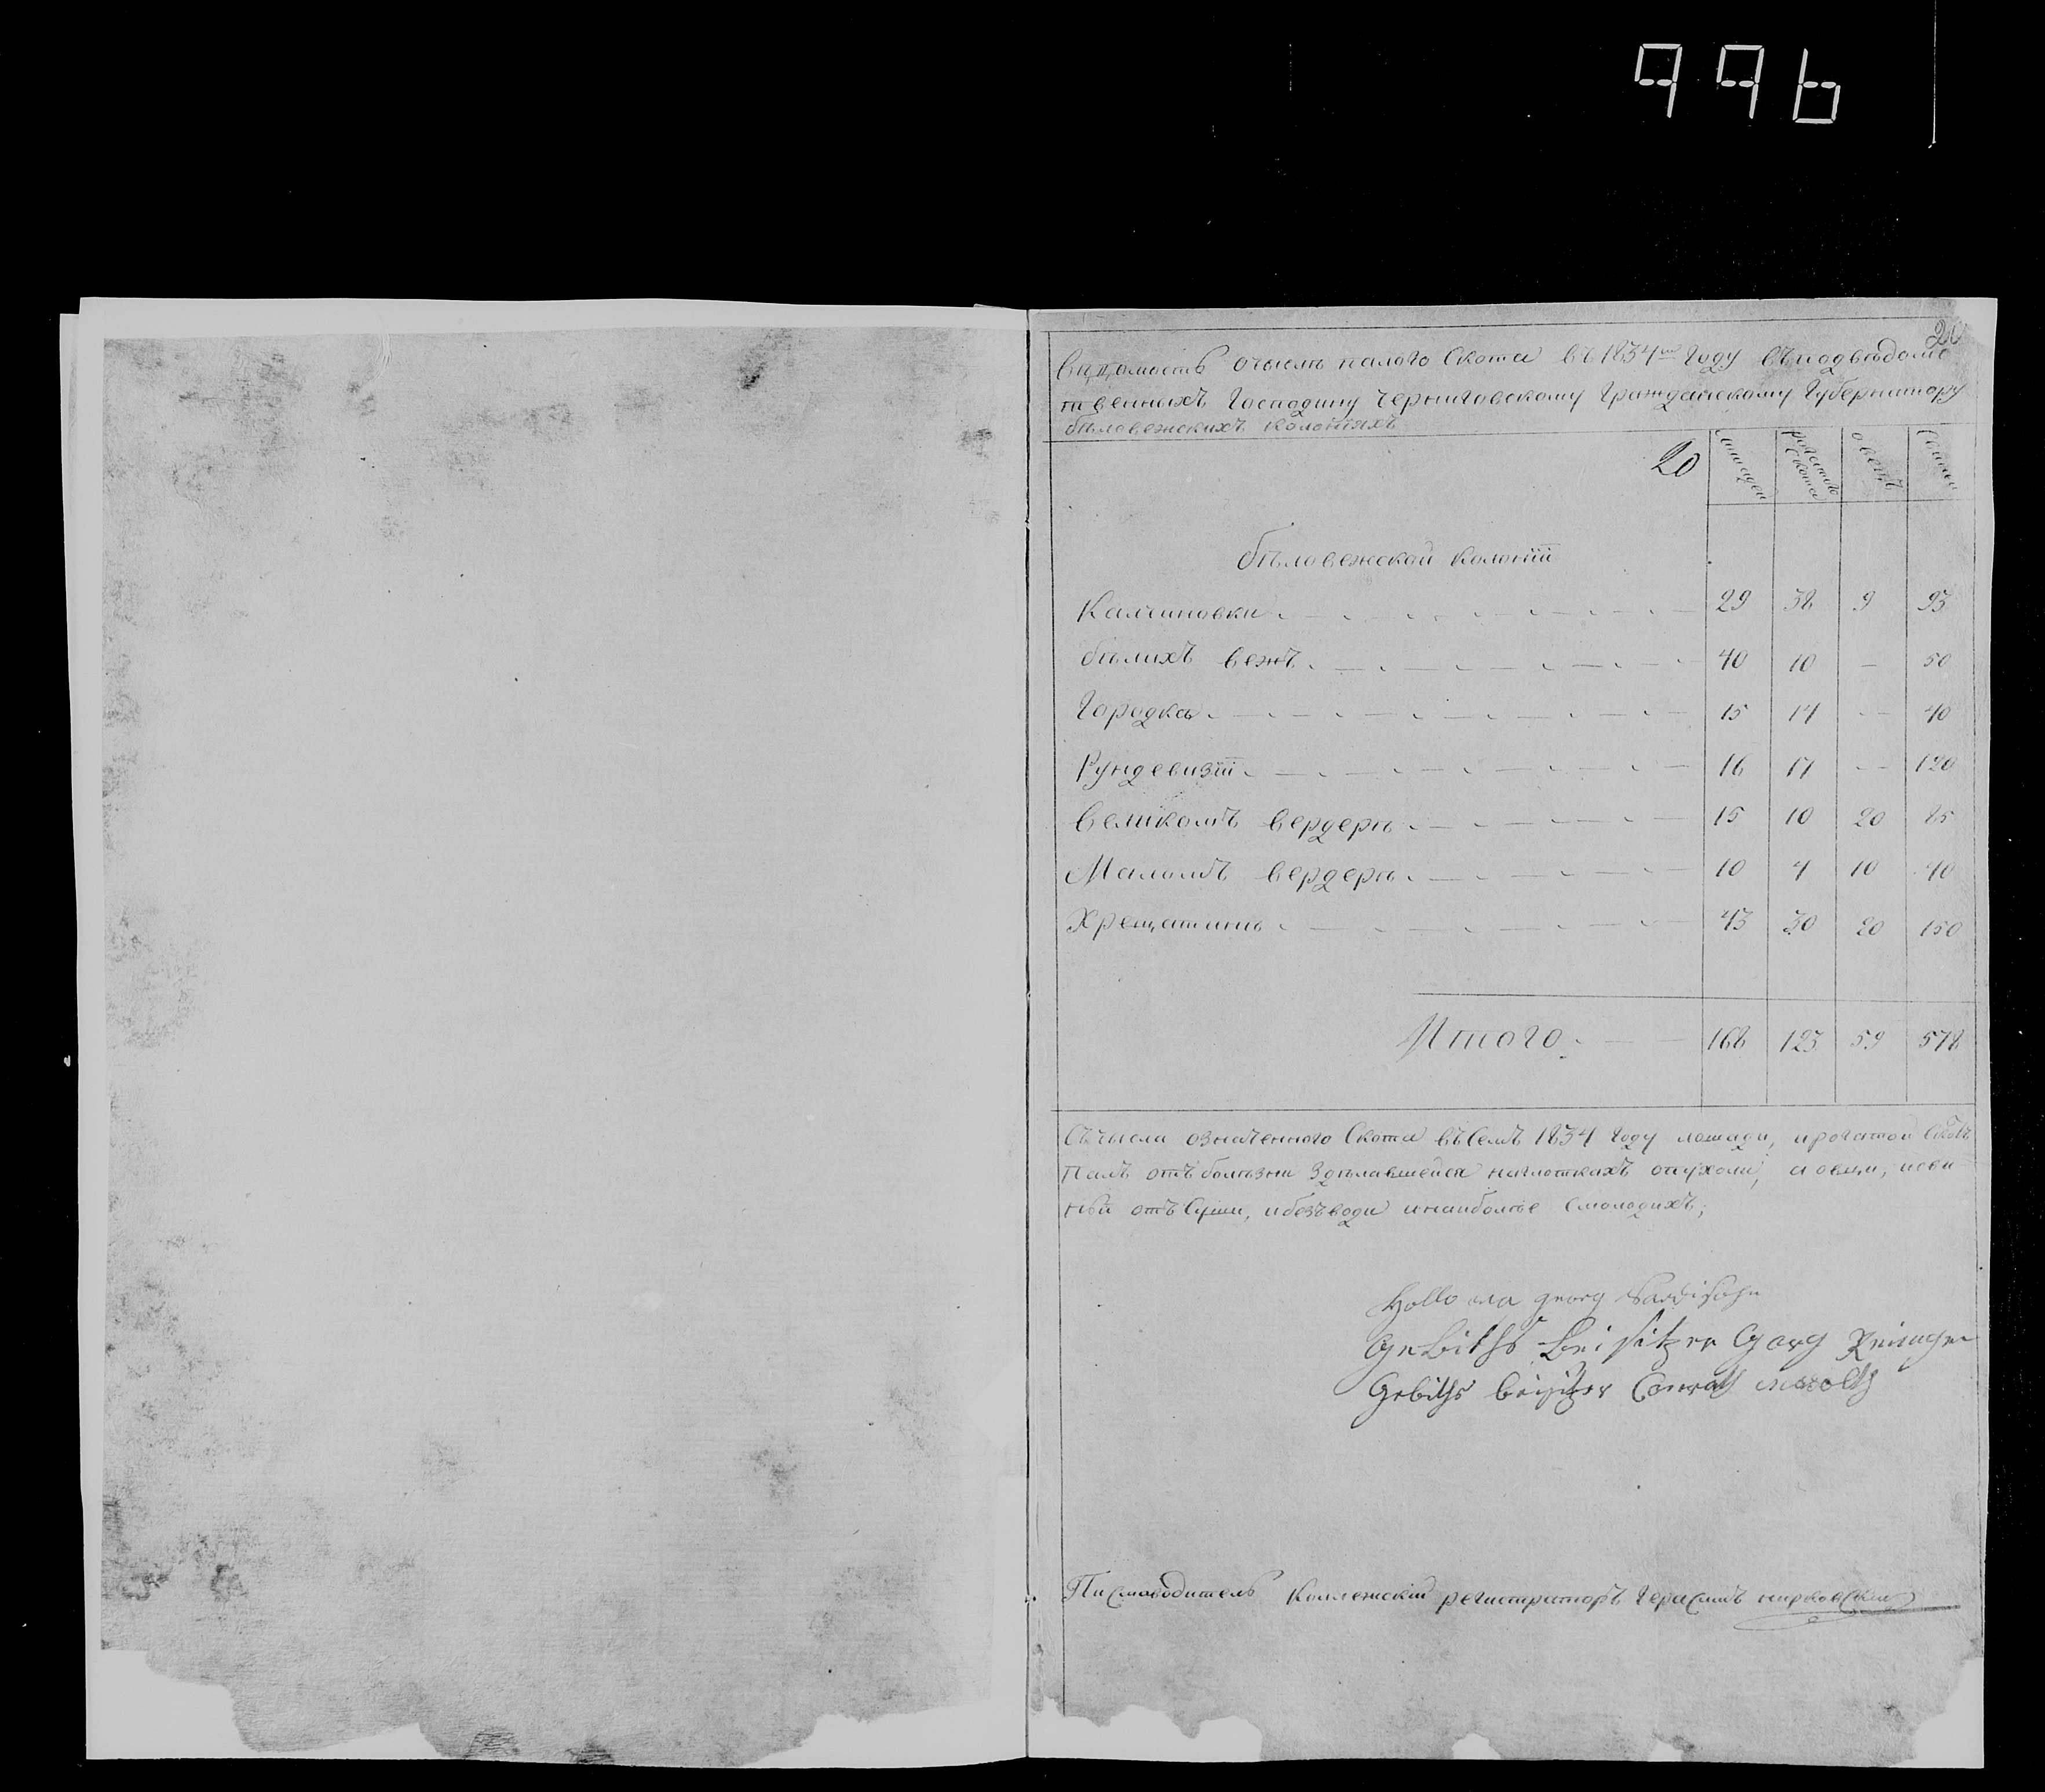 996
20
Вѣдомость о числѣ палого скота въ 1834мъ году въ подвѣдомс
твенныхъ Господину Черниговскому Гражданскому Губернатору
бѣловежскихъ колонїяхъ
20 лошадей рогатого скота овецъ свиней
бѣловежской колонїи
Калчиновки 29 38 9 93
бѣлихъ вежъ 40 10 — 50
Городка 15 14 — 40
Рундевизїи 16 17 — 120
Великомъ вердерѣ 15 10 20 85
Маломъ вердерѣ 10 4 10 40
Хрещатинѣ 43 30 20 150
Итого 168 123 59 578
Съ числа означенного скота въ семъ 1834 году лошади, и рогатой скотъ
палъ отъ болѣзни зделавшейся на глоткахъ опухоли, а овци, и сви
ньи отъ суши, и безъ води и наиболѣе с молодихъ;
georg
Gebiths Beisitzer Gorg
Gebiths beisitzer Conrath
Писмоводитель Коллежскїй регистраторъ Герасимъ